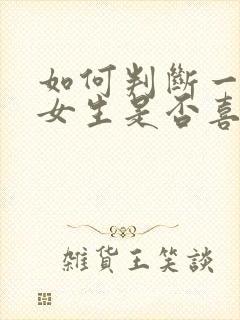 如何判斷一
女生是否喜
雜貨王笑談